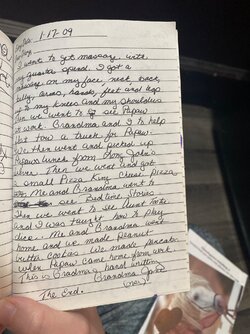 1-17-09
I went to get massay, with
my quarta spend. I got a
massay on my face, neck, back,
belly, arms, hands, feet and top
of my knees and my shoulders
Then we went to see Papaw
at work. Grandma and I to help
tow a truck for Papaw.
We then went and picked up
Papaw's lunch from Long John's
Then we went and got
a small Pizza King Cheese pizza
Me and Grandma went to
see Bedtime Stories
Then we went to see Aunt
and I was taught how to play
dice. Me and Grandma went
home and we made Peanut
butter cookies. We made pancakes
when Papaw came home from work
This is Gradma's hand writting
(Grandma
The End.